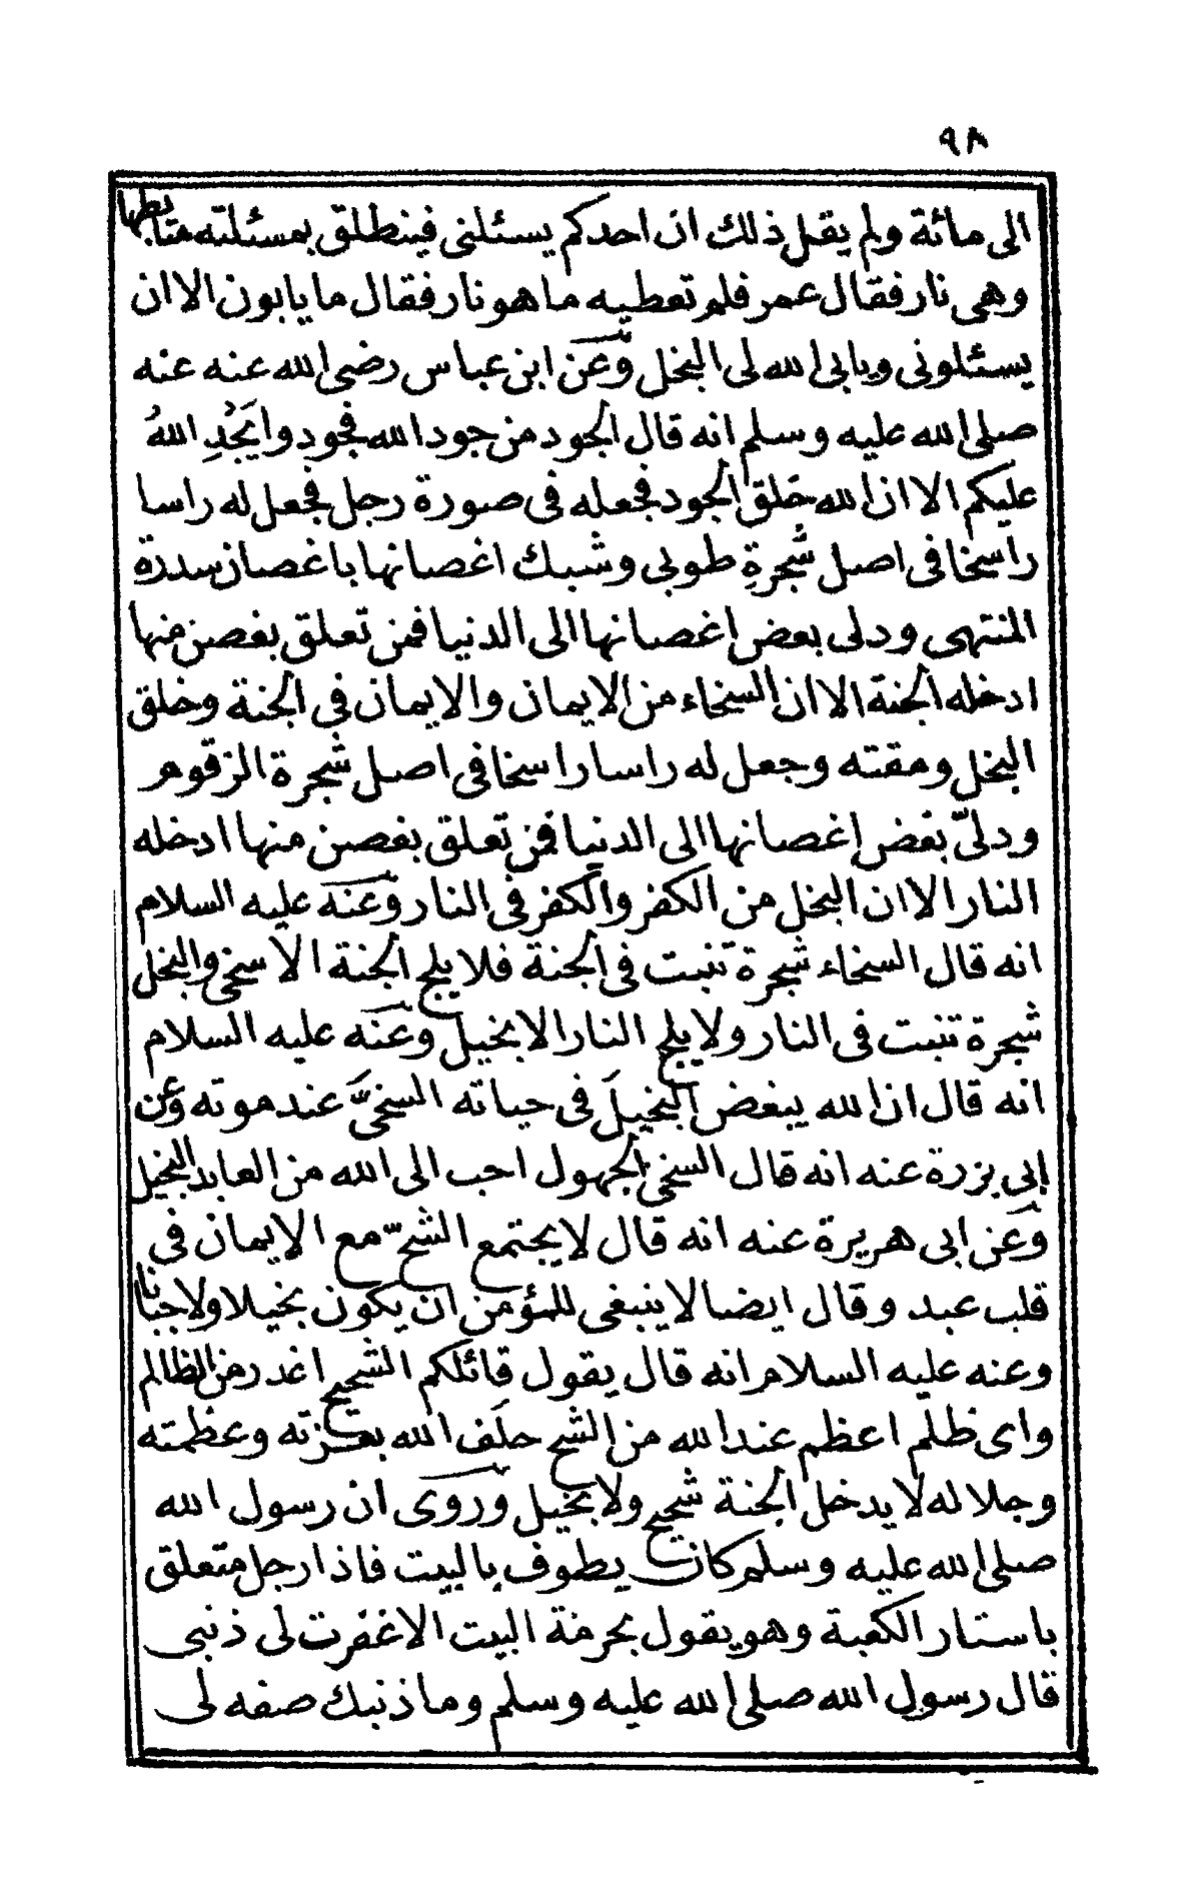 ٩٨
الى مائة ولم يقل ذلك ان احدكم يسئلنى فينطلق بمسئلته متابطها
وهى نار فقال عمر فلم تعطيه ما هو نار فقال ما يابون الا ان
يسئلونى ويابى الله لى البخل وعن ابن عباس رضى الله عنه عنه
صلى الله عليه وسلم انه قال الجود من جود الله فجودوا يَجُدِ اللهُ
عليكم الا ان الله خلق الجود فجعله فى صورة رجل فجعل له راسا
راسخا فى اصل شجرةِ طوبى وشبك اغصانها باغصان سدرة
المنتهى ودلى بعض اغصانها الى الدنيا فمن تعلق بغصن منها
ادخله الجنة الا ان السخاء من الايمان والايمان فى الجنة وخلق
البخل ومقته وجعل له راسا راسخا فى اصل شجرة الزقوم
ودلىّ بعض اغصانها الى الدنيا فمن تعلق بغصن منها ادخله
النار الا ان البخل من الكفر والكفر فى النار وعنه عليه السلام
انه قال السخاء شجرة تنبت فى الجنة فلا يلج الجنة الا سخى والبخل
شجرة تنبت فى النار ولا يلج النار الا بخيل وعنه عليه السلام
انه قال ان الله يبغض البخيلَ فى حياته السخىَّ عند موته وعن
ابى بزرة عنه انه قال السخى الجهول احب الى الله من العابد البخيل
وعن ابى هريرة عنه انه قال لا يجتمع الشحّ مع الايمان فى
قلب عبد وقال ايضا لا ينبغى للمؤمن ان يكون بخيلا ولا جبانا
وعنه عليه السلام انه قال يقول قائلكم الشحيح اغدر من الظالم
واى ظلم اعظم عند الله من الشح حلَف الله بعزته وعظمته
وجلاله لا يدخل الجنة شحيح ولا بخيل وروى ان رسول الله
صلى الله عليه وسلم كان يطوف بالبيت فاذا رجل متعلق
باستار الكعبة وهو يقول بحرمة البيت الا غفرت لى ذنبى
قال رسول الله صلى الله عليه وسلم وما ذنبك صفه لى